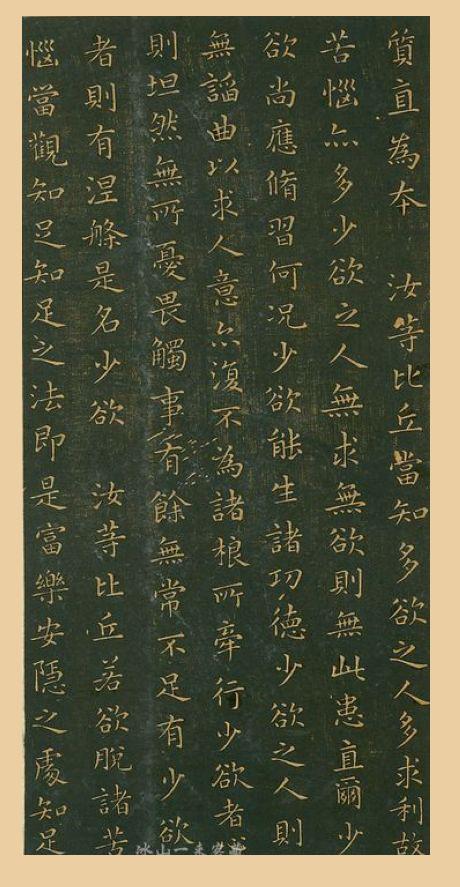 質直為本 汝等比丘當知多欲之人多求利故
苦惱亦多少欲之人無求無欲則無此患直爾少
欲尚應脩習何況少欲能生諸功德少欲之人則
無諂曲以求人意亦復不為諸根所牽行少欲者
則坦然無所憂畏觸事有餘無常不足有少欲
者則有涅槃是名少欲 汝等比丘若欲脫諸苦
惱當觀知足知足之法即是富樂安隱之處知足